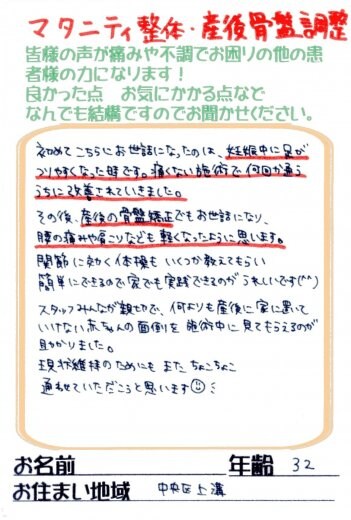 マタニティ整体・産後骨盤調整
皆様の声が痛みや不調でお困りの他の患
者様の力になります！
良かった点　お気にかかる点など
なんでも結構ですのでお聞かせください。
初めてこちらにお世話になったのは、妊娠中に足が
つりやすくなった時です。痛くない施術で何回か通う
うちに改善されていきました。
その後、産後の骨盤矯正でもお世話になり、
腰の痛みや肩こりなども軽くなったように思います。
関節に効く体操も いくつか教えてもらい
簡単にできるので家でも実践できるのが うれしいです(^^)
スタッフみんなが親切で、何よりも産後に家に置いて
いけない赤ちゃんの面倒を 施術中に見てもらえるのが
助かりました。
現状維持のためにも また ちょこちょこ
通わせていただこうと思います☺
お名前　年齢 32
お住まい地域　中央区上溝